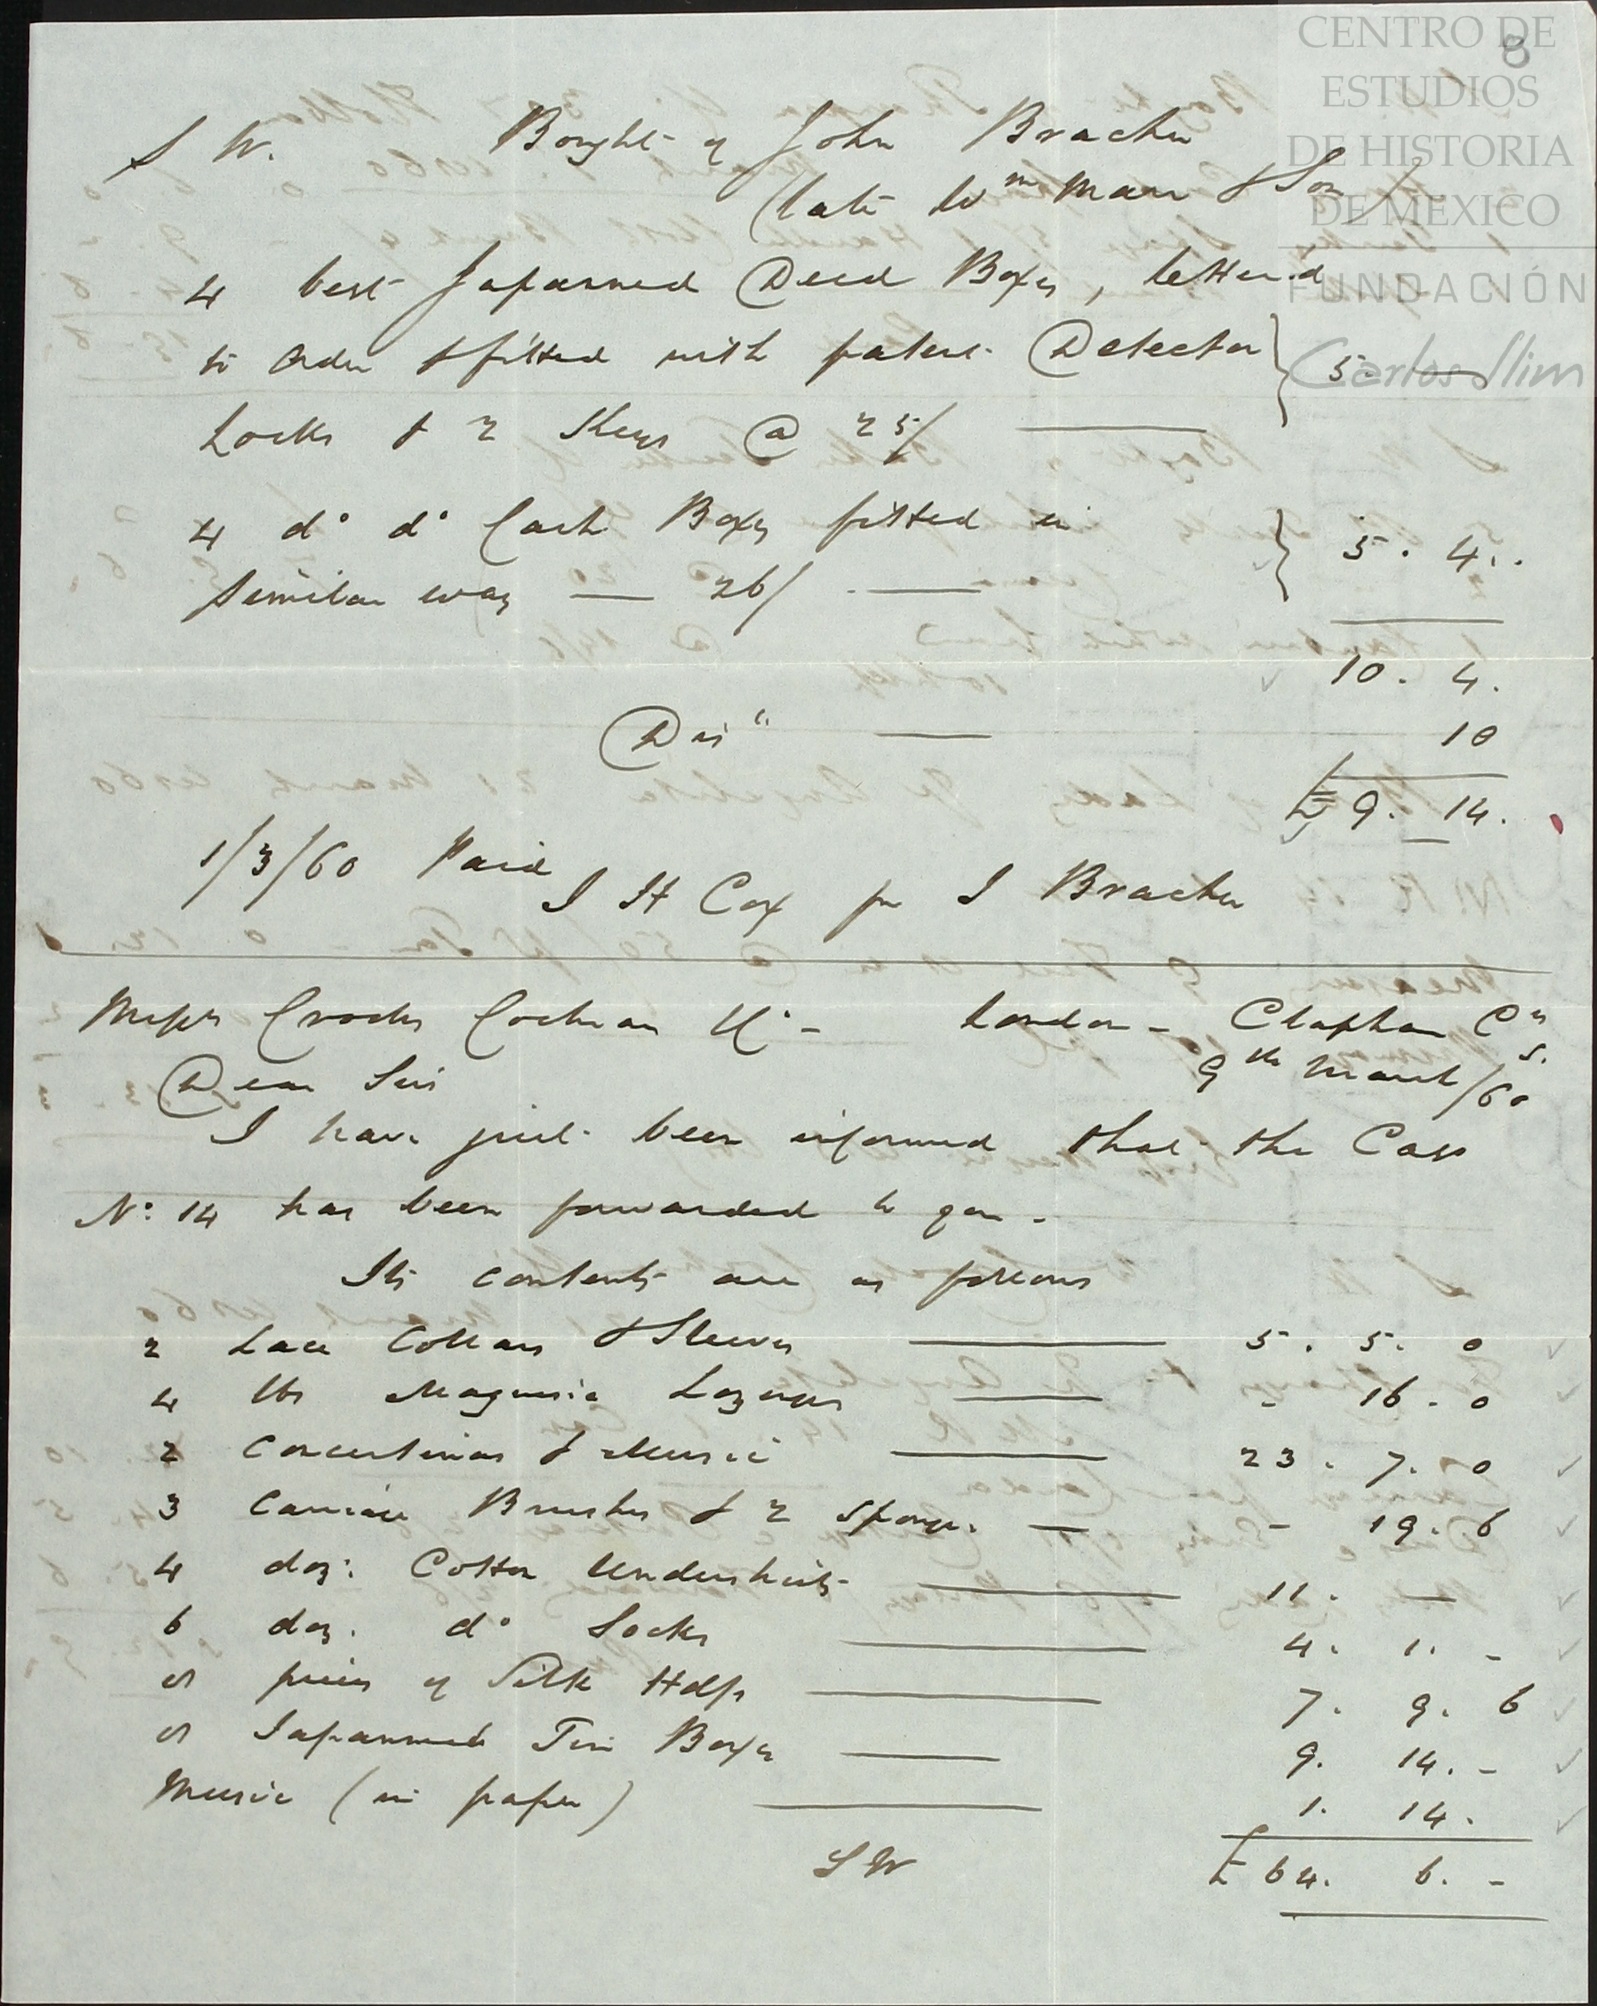 CENTRO DE
ESTUDIOS
DE HISTORIA
DE MEXICO
FUNDACIÓN
Carlos Slim
8
S W. Bought of John Bracher
(late Wm Marr & Son)
4 best Japanned Deed Boxes, lettered
to order & fitted with patent Detector
Locks & 2 Keys @ 25/ — 5. —
4 do do Cash Boxes fitted in
similar way — 26/ — 5. 4. .
10. 4.
Dis — 10
£ 9. 14.
1/3/60 Paid J H Cox for J Bracher
Messrs Crooks Cochran Co - London - Clapham Cn
Dear Sirs 9th March/60
I have just been informed that the Case
No. 14 has been forwarded to you -
Its contents are as follows
2 Lace Collars & Sleeves — 5. 5. 0
4 lbs Magnesia Lozenges — - 16. 0
2 Concertinas & Music — 23. 7. 0
3 Brushes & 2 Sponges. — - 19. 6
4 doz: Cotton Undershirts — 11. —
6 doz. do Socks — 4. 1. -
8 pieces of Silk Hdfs — 7. 9. 6
8 Japanned Tin Boxes — 9. 14. -
Music (in paper) — 1. 14.
S W £ 64. 6. -